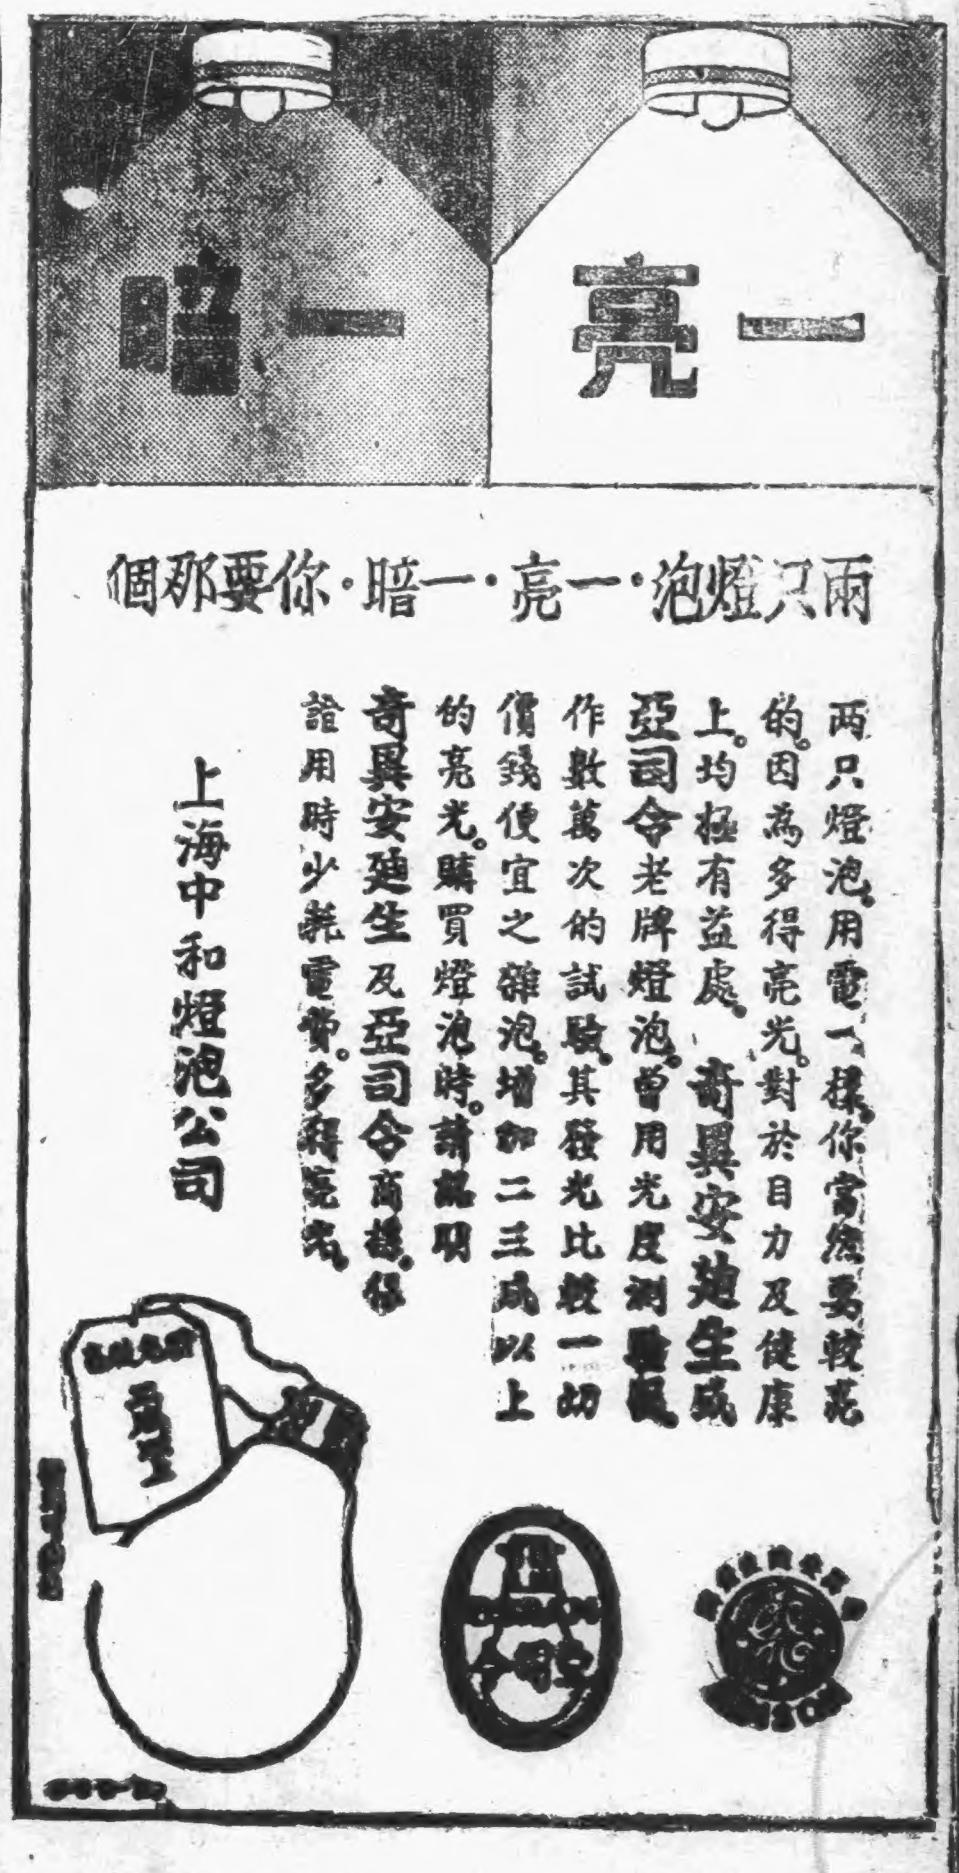 一亮
一暗
兩只燈泡·一亮·一暗·你要那個
两只燈泡。用電一樣。你當然要較亮
的。因為多得亮光。對於目力及健康
上。均極有益處。奇異安廸生或
亞司令老牌燈泡。曾用光度測驗
作數萬次的試驗。其發光比較一切
價錢便宜之雜泡。增加二三成以上
的亮光。購買燈泡時。請認明
奇異安廸生及亞司令商標。保
證用時少耗電費。多得亮光。
上海中和燈泡公司
亞司令